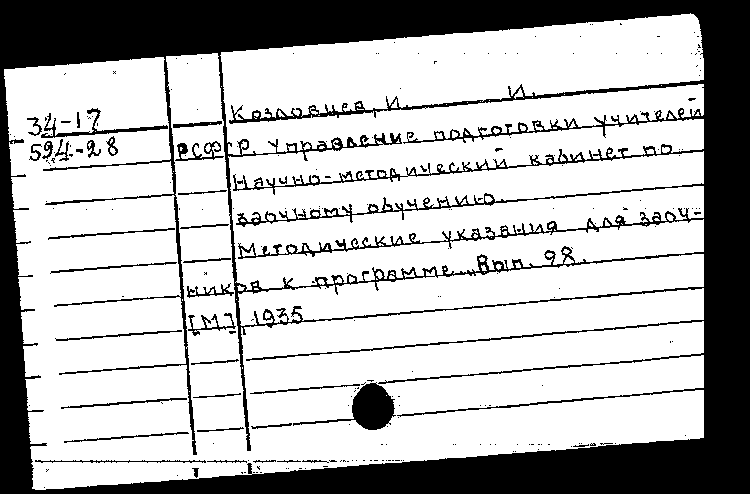 34-17
594-28
Козловцев, И. И.
РСФСР. Управление подготовки учителей
Научно-методический кабинет по
заочному обучению.
Методические указания для заоч-
ников к программе. Вып. 98.
[М.], 1935